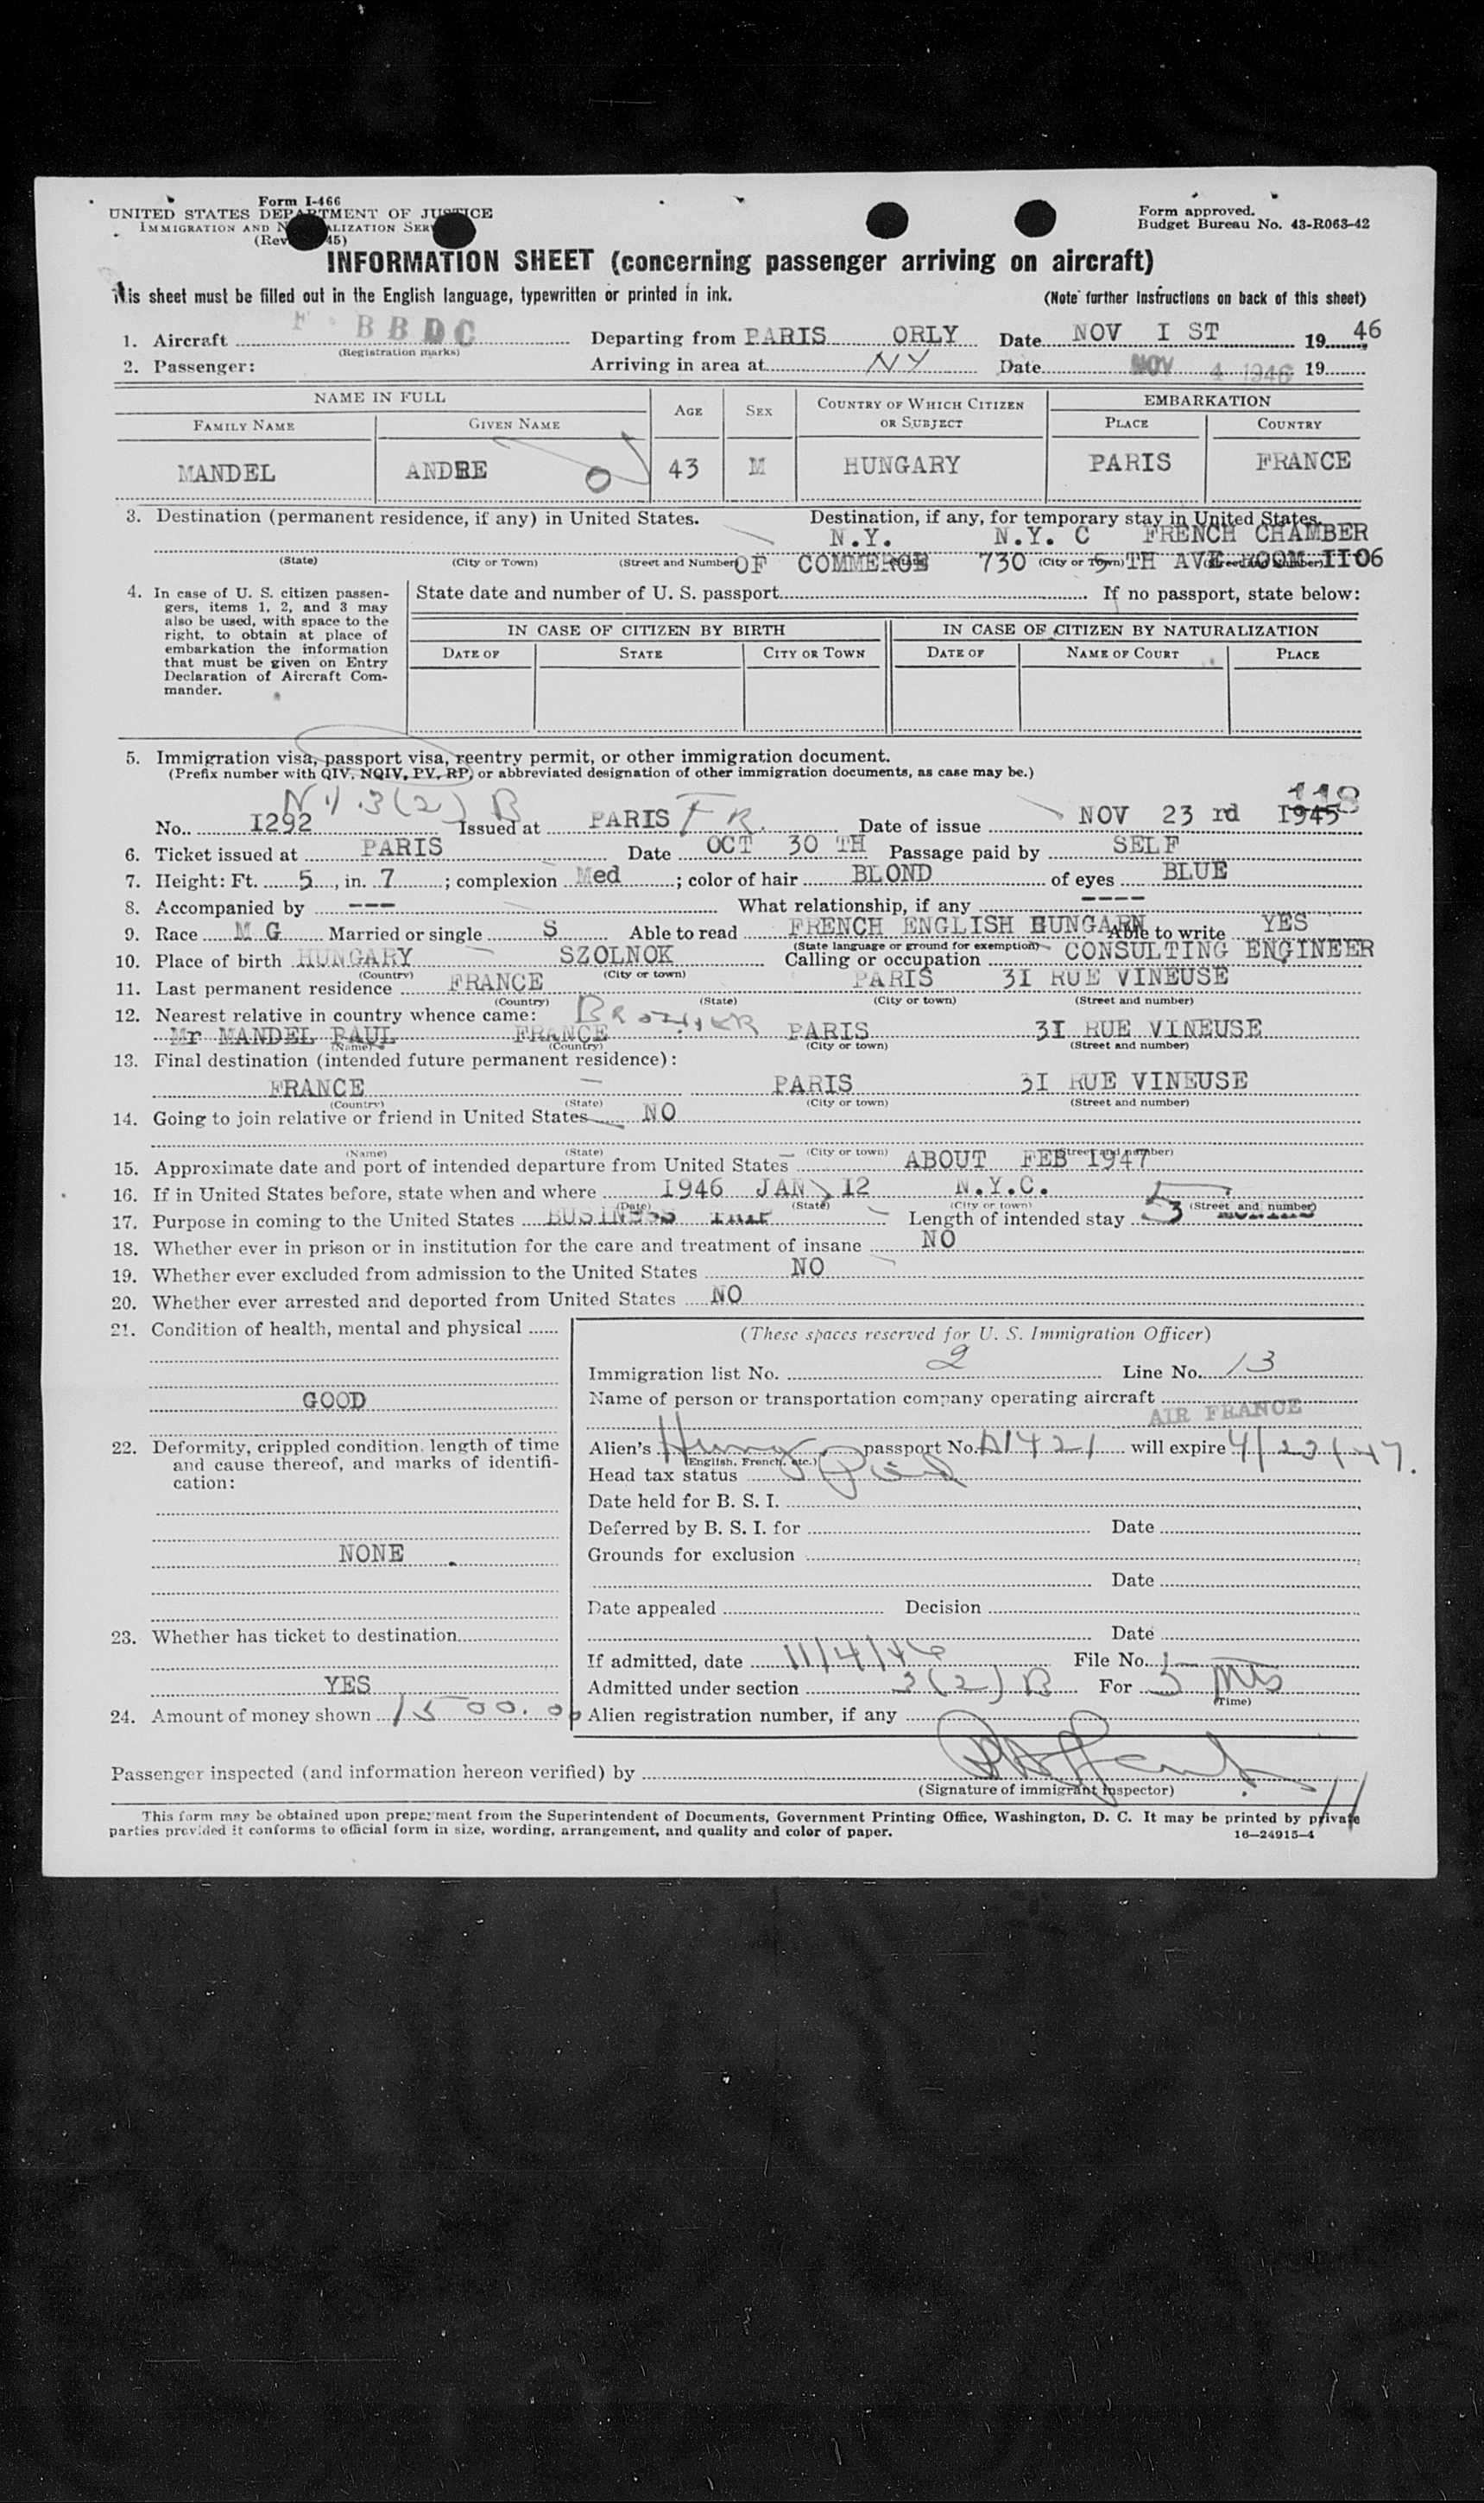 Form I-466
UNITED STATES DEPARTMENT OF JUSTICE
IMMIGRATION AND NATURALIZATION SERV
(Rev. 45)
Form approved.
Budget Bureau No. 43-R063-42
INFORMATION SHEET (concerning passenger arriving on aircraft)
This sheet must be filled out in the English language, typewritten or printed in ink.
(Note further Instructions on back of this sheet)
1. Aircraft F BBDC Departing from PARIS ORLY Date NOV I ST 1946
(Registration marks)
2. Passenger: Arriving in area at NY Date NOV 4 1946 19
NAME IN FULL AGE SEX COUNTRY OF WHICH CITIZEN OR SUBJECT EMBARKATION
FAMILY NAME GIVEN NAME PLACE COUNTRY
MANDEL ANDRE 43 M HUNGARY PARIS FRANCE
3. Destination (permanent residence, if any) in United States. Destination, if any, for temporary stay in United States.
N.Y. N.Y. C FRENCH CHAMBER
OF COMMERCE 730 5 TH AVE ROOM II06
(State) (City or Town) (Street and Number) (State) (City or Town) (Street and Number)
4. In case of U. S. citizen passengers, items 1, 2, and 3 may also be used, with space to the right, to obtain at place of embarkation the information that must be given on Entry Declaration of Aircraft Commander.
State date and number of U. S. passport If no passport, state below:
IN CASE OF CITIZEN BY BIRTH IN CASE OF CITIZEN BY NATURALIZATION
DATE OF STATE CITY OR TOWN DATE OF NAME OF COURT PLACE
5. Immigration visa, passport visa, reentry permit, or other immigration document.
(Prefix number with QIV, NQIV, PV, RP, or abbreviated designation of other immigration documents, as case may be.)
3(2) B 118
No. I292 Issued at PARIS FR. Date of issue NOV 23 rd I945
6. Ticket issued at PARIS Date OCT 30 TH Passage paid by SELF
7. Height: Ft. 5, in. 7; complexion Med; color of hair BLOND of eyes BLUE
8. Accompanied by --- What relationship, if any ----
9. Race M G Married or single S Able to read FRENCH ENGLISH HUNGARN Able to write YES
(State language or ground for exemption)
10. Place of birth HUNGARY SZOLNOK Calling or occupation CONSULTING ENGINEER
(Country) (City or town)
11. Last permanent residence FRANCE PARIS 3I RUE VINEUSE
(Country) (State) (City or town) (Street and number)
12. Nearest relative in country whence came: BROTHER
Mr MANDEL PAUL FRANCE PARIS 3I RUE VINEUSE
(Name) (Country) (City or town) (Street and number)
13. Final destination (intended future permanent residence):
FRANCE PARIS 3I RUE VINEUSE
(Country) (State) (City or town) (Street and number)
14. Going to join relative or friend in United States NO
(Name) (State) (City or town) (Street and number)
15. Approximate date and port of intended departure from United States ABOUT FEB 1947
16. If in United States before, state when and where I946 JAN 12 N.Y.C.
(Date) (State) (City or town) (Street and number)
17. Purpose in coming to the United States BUSINESS TRIP Length of intended stay 3
18. Whether ever in prison or in institution for the care and treatment of insane NO
19. Whether ever excluded from admission to the United States NO
20. Whether ever arrested and deported from United States NO
21. Condition of health, mental and physical
GOOD
22. Deformity, crippled condition, length of time and cause thereof, and marks of identification:
NONE
23. Whether has ticket to destination
YES
24. Amount of money shown 1500.00
(These spaces reserved for U. S. Immigration Officer)
Immigration list No. 2 Line No. 13
Name of person or transportation company operating aircraft
AIR FRANCE
Alien's Hung passport No. A1421 will expire 4/23/47.
(English, French, etc.)
Head tax status Paid
Date held for B. S. I.
Deferred by B. S. I. for Date
Grounds for exclusion
Date
Date appealed Decision
Date
If admitted, date 11/4/46 File No.
Admitted under section 3(2) B For 3 Mts
(Time)
Alien registration number, if any
Passenger inspected (and information hereon verified) by
(Signature of immigrant inspector)
This form may be obtained upon prepayment from the Superintendent of Documents, Government Printing Office, Washington, D. C. It may be printed by private
parties provided it conforms to official form in size, wording, arrangement, and quality and color of paper.
16—24915-4